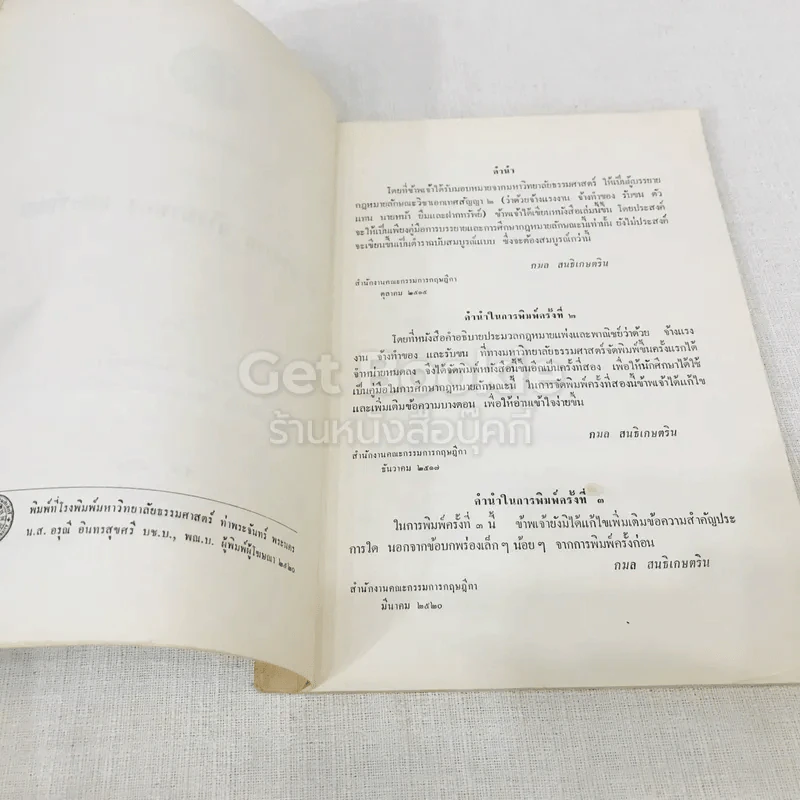 พิมพ์ที่โรงพิมพ์มหาวิทยาลัยธรรมศาสตร์ ท่าพระจันทร์ พระนคร
น.ส. อรุณี อินทรสุขศรี บช.บ., พณ.บ. ผู้พิมพ์ผู้โฆษณา ๒๕๒๐
คำนำ
โดยที่ข้าพเจ้าได้รับมอบหมายจากมหาวิทยาลัยธรรมศาสตร์ ให้เป็นผู้บรรยาย
กฎหมายลักษณะวิชาเอกเทศสัญญา ๒ (ว่าด้วยจ้างแรงงาน จ้างทำของ รับขน ตัว
แทน นายหน้า ยืมและฝากทรัพย์) ข้าพเจ้าได้เขียนหนังสือเล่มนี้ขึ้น โดยประสงค์
จะให้เป็นเพียงคู่มือการบรรยายและการศึกษากฎหมายลักษณะนี้เท่านั้น ยังไม่ประสงค์
จะเขียนขึ้นเป็นตำราฉบับสมบูรณ์แบบ ซึ่งจะต้องสมบูรณ์กว่านี้
กมล สนธิเกษตริน
สำนักงานคณะกรรมการกฤษฎีกา
ตุลาคม ๒๕๑๕
คำนำในการพิมพ์ครั้งที่ ๒
โดยที่หนังสือคำอธิบายประมวลกฎหมายแพ่งและพาณิชย์ว่าด้วย จ้างแรง
งาน จ้างทำของ และรับขน ที่ทางมหาวิทยาลัยธรรมศาสตร์จัดพิมพ์ขึ้นครั้งแรกได้
จำหน่ายหมดลง จึงได้จัดพิมพ์หนังสือนี้ขึ้นอีกเป็นครั้งที่สอง เพื่อให้นักศึกษาได้ใช้
เป็นคู่มือในการศึกษากฎหมายลักษณะนี้ ในการจัดพิมพ์ครั้งที่สองนี้ข้าพเจ้าได้แก้ไข
และเพิ่มเติมข้อความบางตอน เพื่อให้อ่านเข้าใจง่ายขึ้น
Get
ร้านหนังสือบุ๊คกี้
กมล สนธิเกษตริน
สำนักงานคณะกรรมการกฤษฎีกา
ธันวาคม ๒๕๑๗
คำนำในการพิมพ์ครั้งที่ ๓
ในการพิมพ์ครั้งที่ ๓ นี้ ข้าพเจ้ายังมิได้แก้ไขเพิ่มเติมข้อความสำคัญประ
การใด นอกจากข้อบกพร่องเล็ก ๆ น้อย ๆ จากการพิมพ์ครั้งก่อน
กมล สนธิเกษตริน
สำนักงานคณะกรรมการกฤษฎีกา
มีนาคม ๒๕๒๐